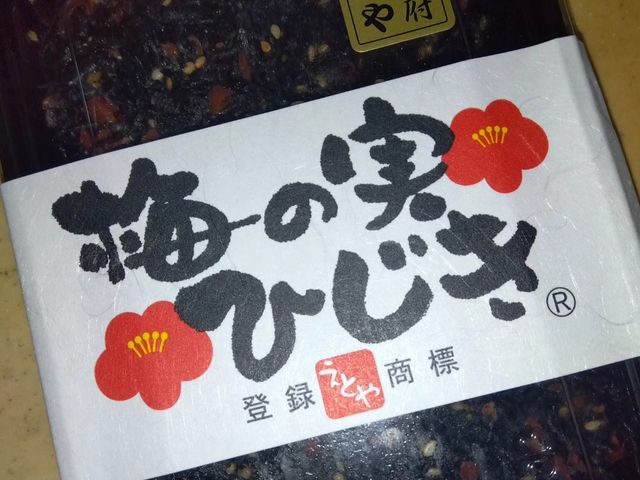 や 府
梅の実
ひじき®
登録 えとや 商標